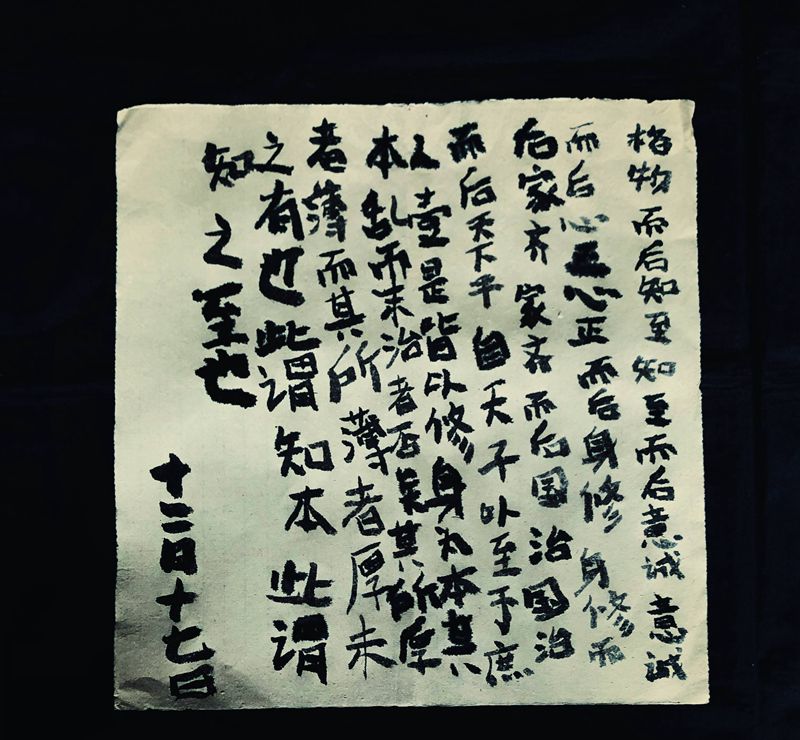 格物而后知至知至而后意诚意诚
而后心正心正而后身修身修而
后家齐家齐而后国治国治
而后天下平自天子以至于庶
人壹是皆以修身为本其
本乱而末治者否矣其所厚
者薄而其所薄者厚未
之有也此谓知本此谓
知之至也
十二月十七日